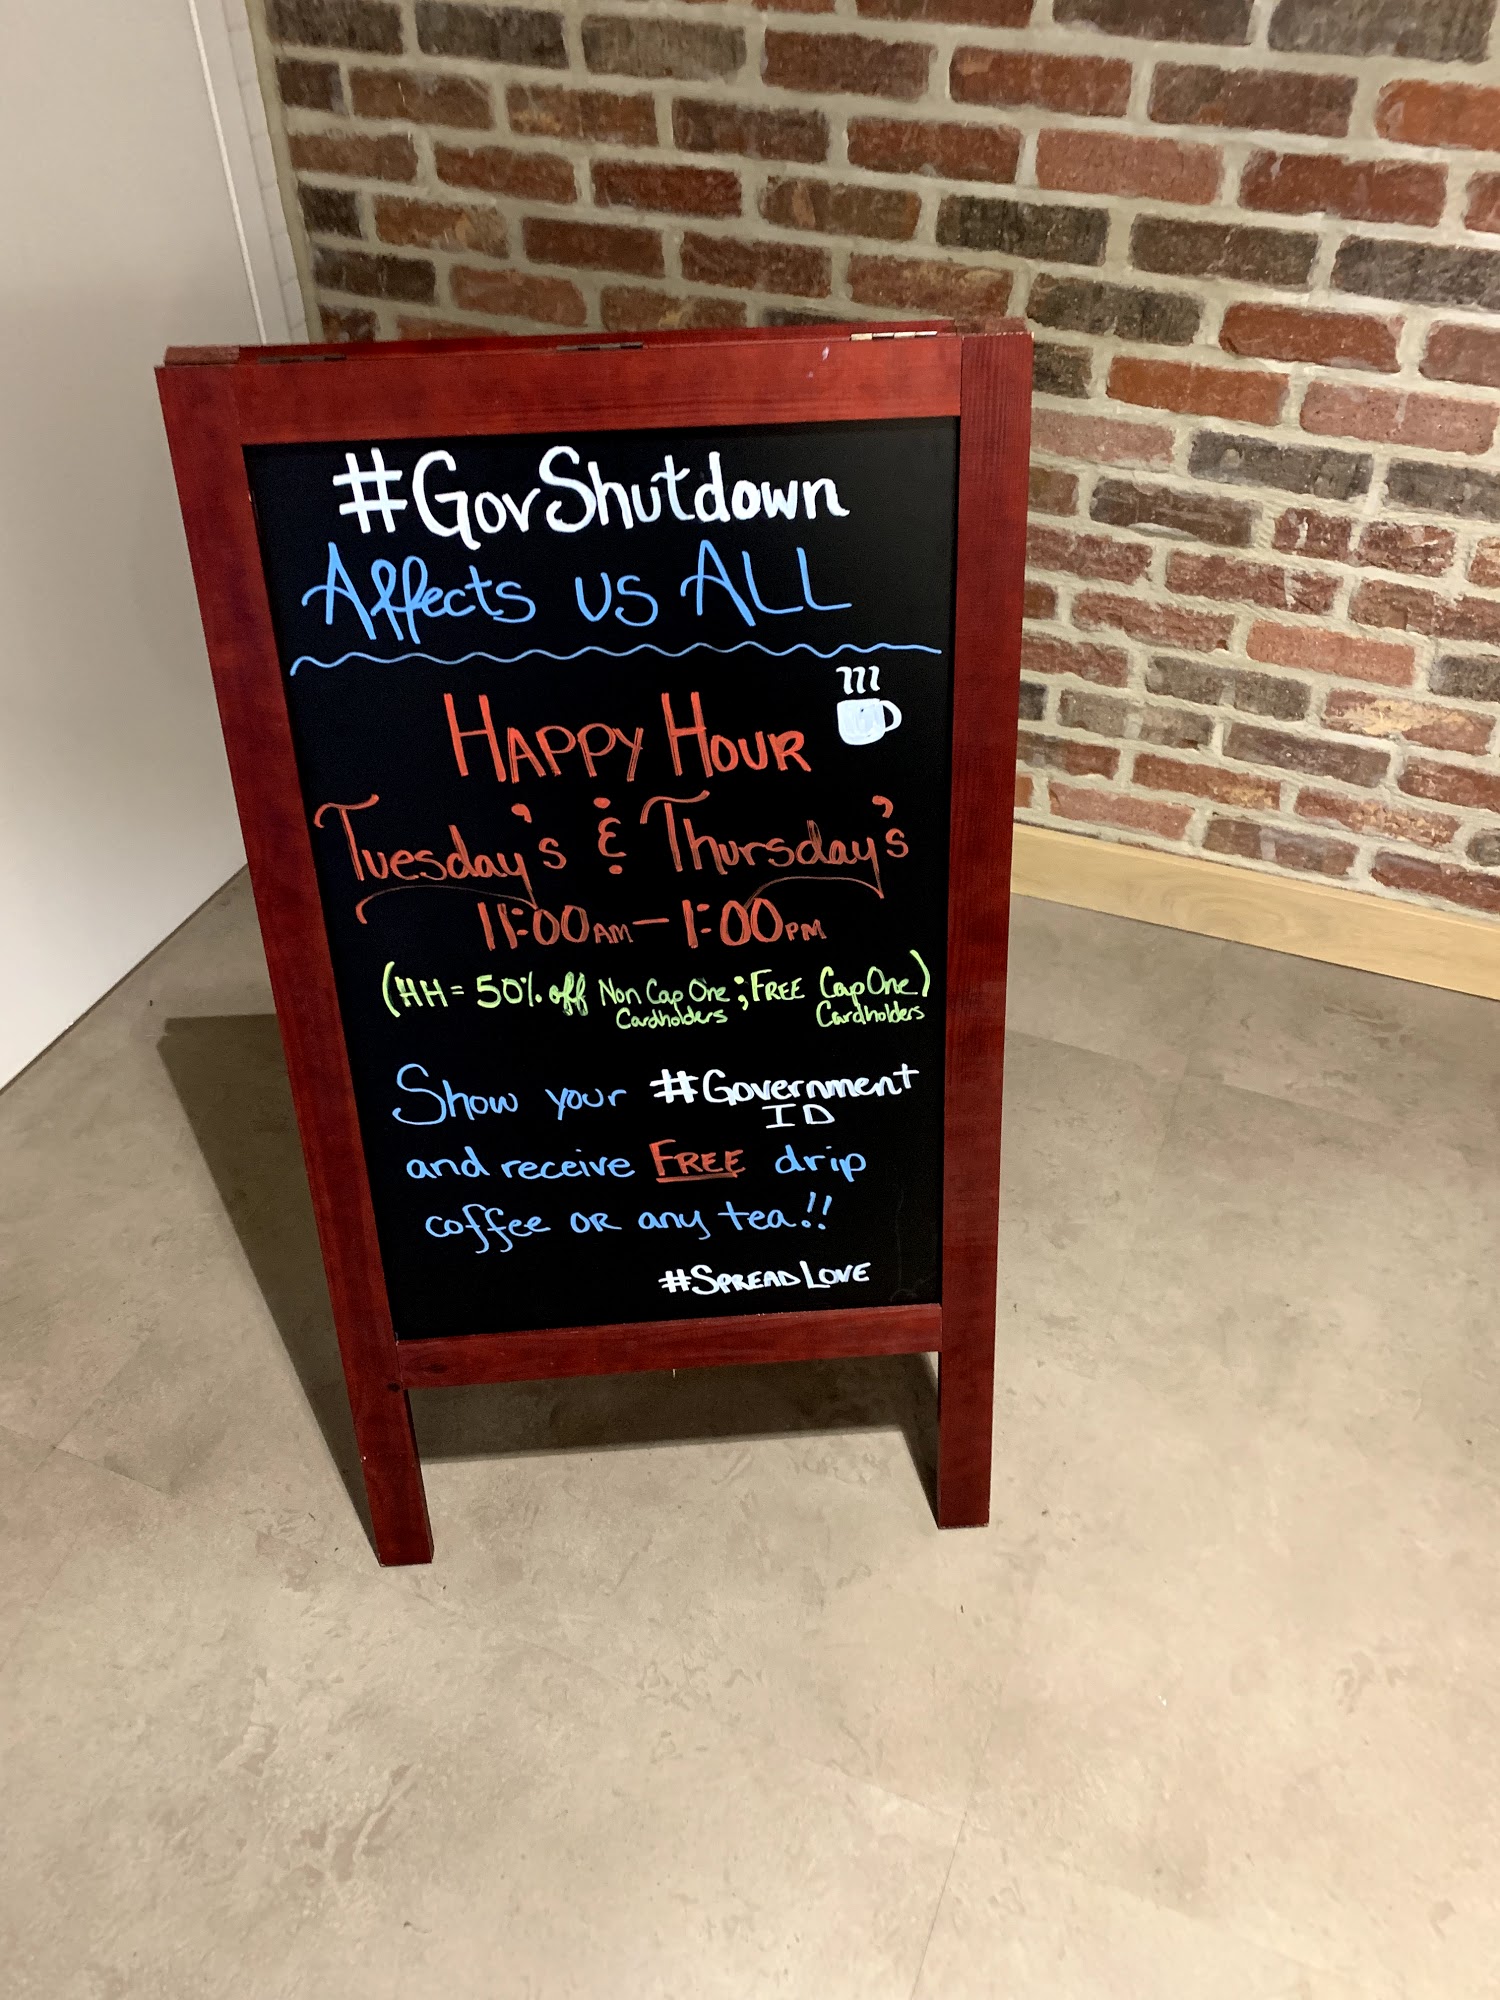 #GovShutdown
Affects us ALL
Happy Hour
Tuesday's & Thursday's
11:00am - 1:00pm
(HH = 50% off Non Cap One ; FREE Cap One)
Cardholders Cardholders
Show your #Government
ID
and receive FREE drip
coffee or any tea!!
#SpreadLove